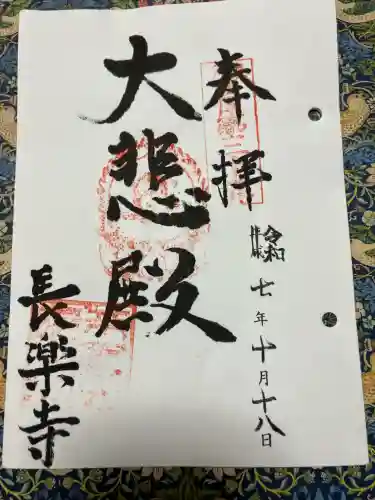 奉拝
令和七年十月十八日
大悲殿
長楽寺